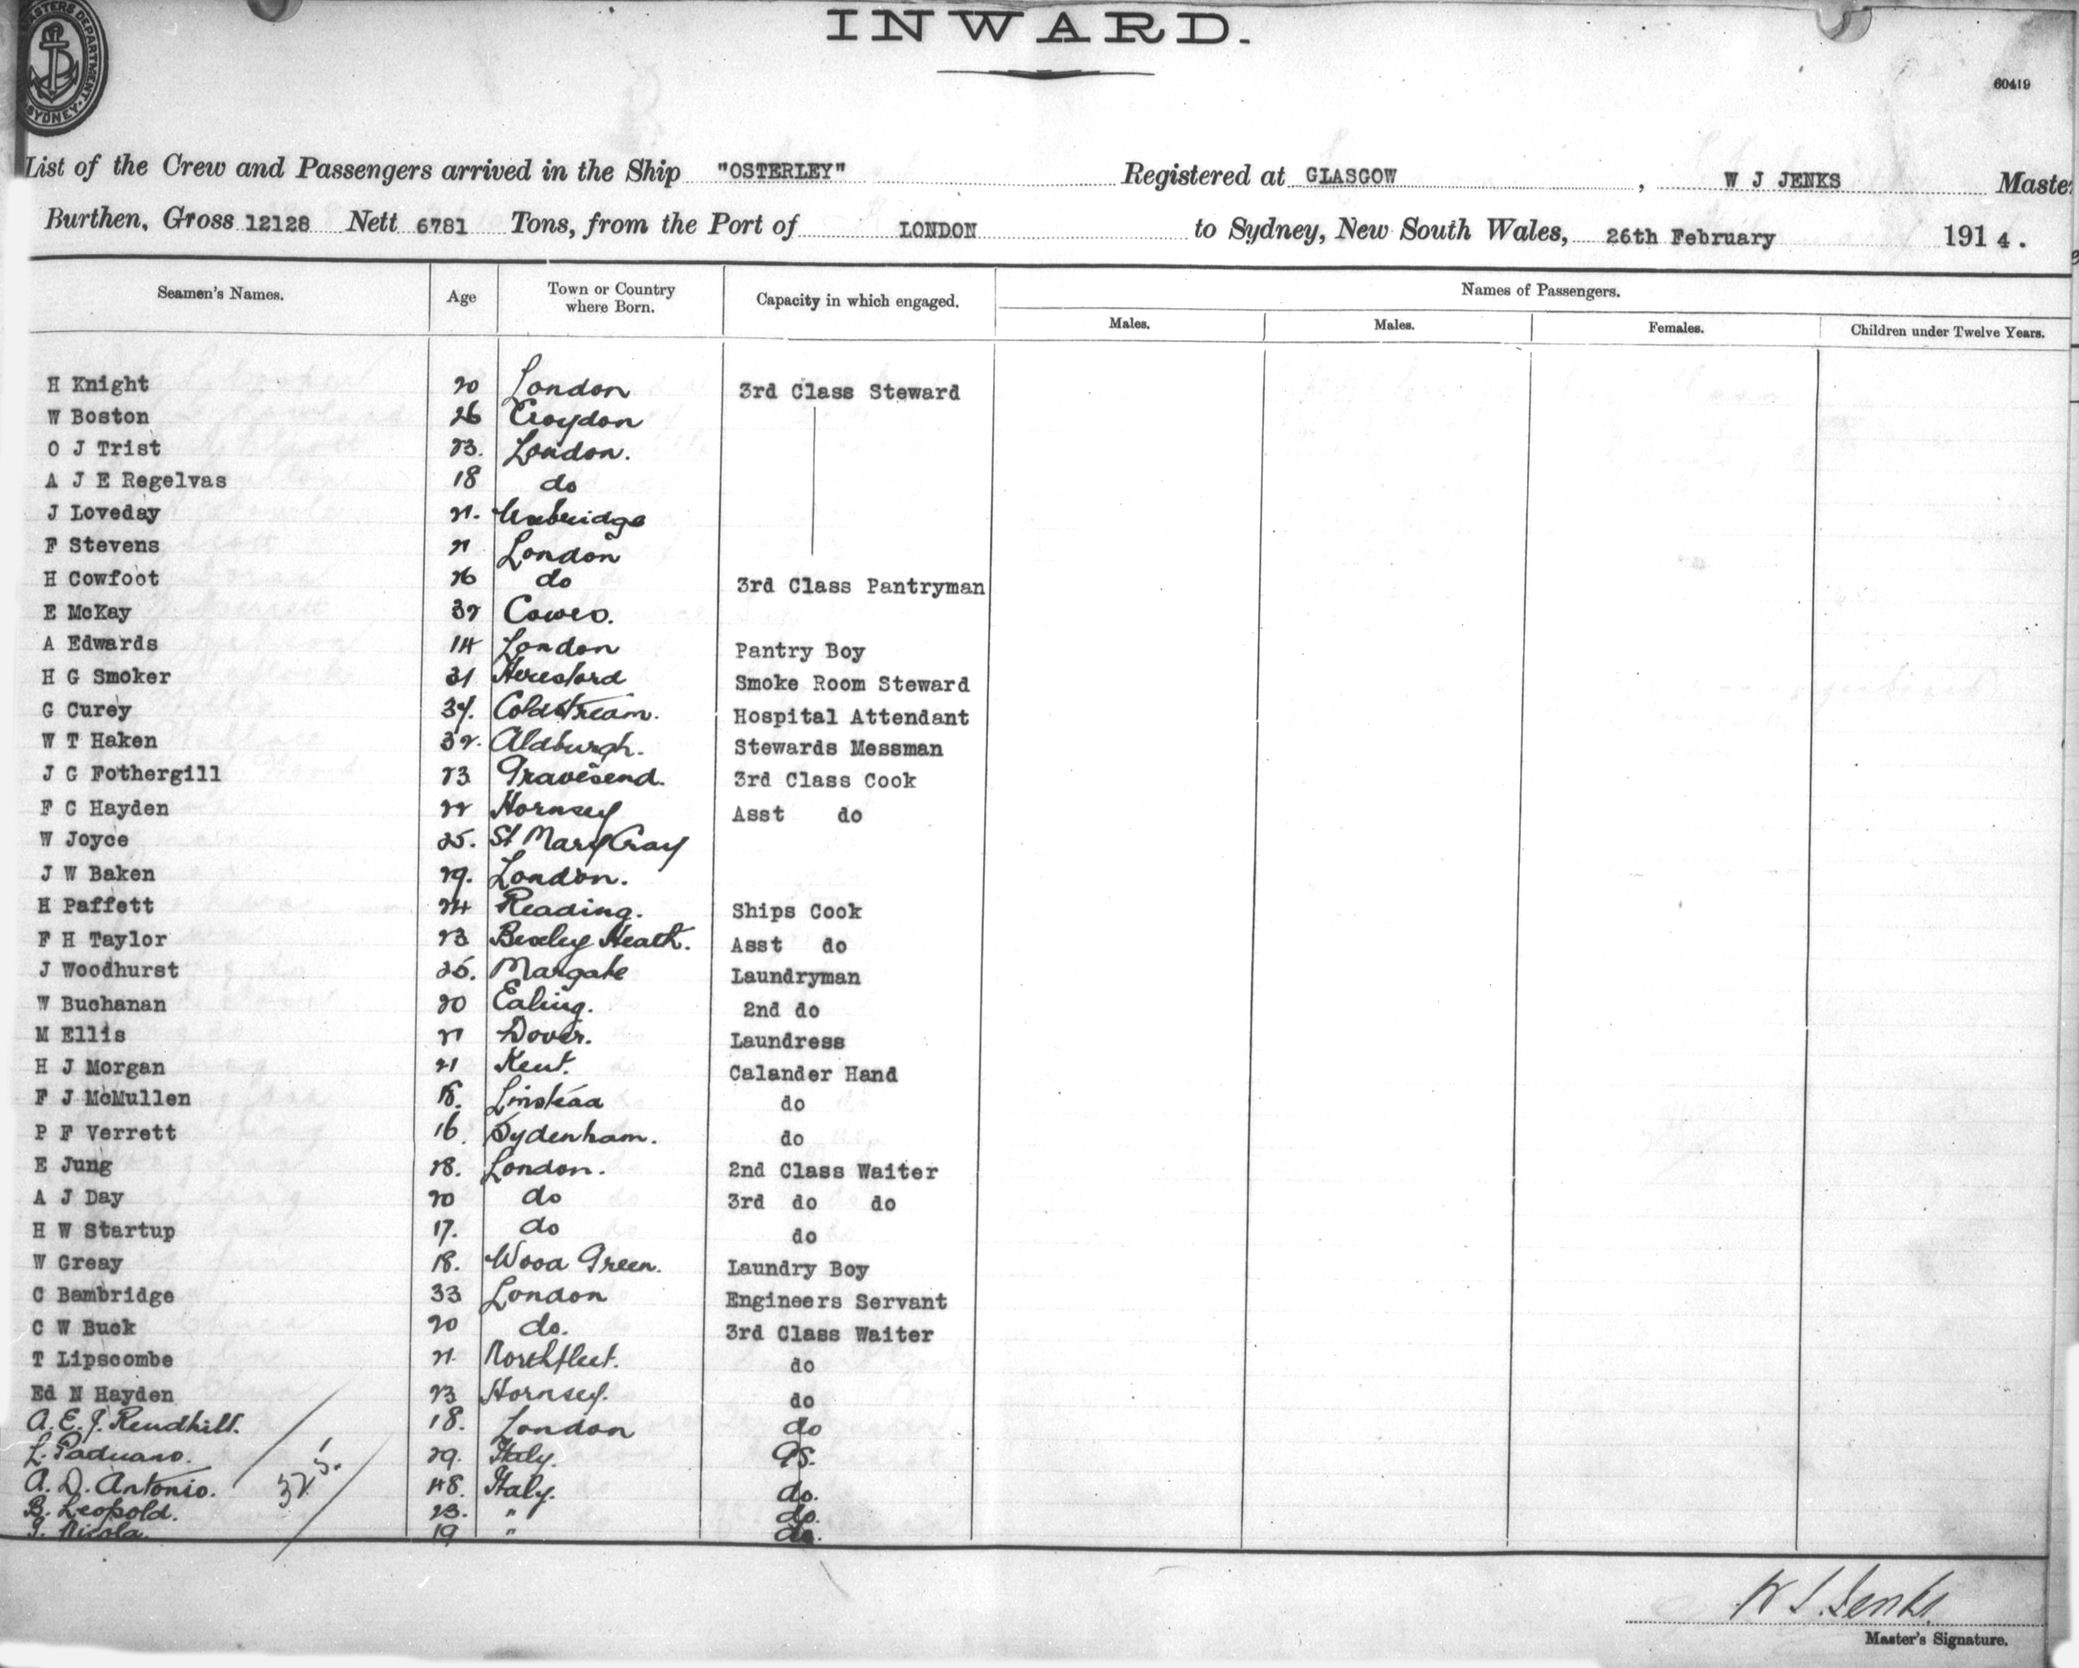 MASTERS DEPARTMENT. SYDNEY
INWARD.
60419
List of the Crew and Passengers arrived in the Ship "OSTERLEY" Registered at GLASGOW, W J JENKS Master
Burthen, Gross 12128 Nett 6781 Tons, from the Port of LONDON to Sydney, New South Wales, 26th February 1914.
Seamen's Names. Age Town or Country where Born. Capacity in which engaged. Names of Passengers.
Males. Males. Females. Children under Twelve Years.
H Knight 20 London 3rd Class Steward
W Boston 26 Croydon
O J Trist 23. London.
A J E Regelvas 18 do
J Loveday 21. Uxbridge
F Stevens 21 London
H Cowfoot 26 do 3rd Class Pantryman
E McKay 32 Cowes.
A Edwards 14 London Pantry Boy
H G Smoker 31 Hereford Smoke Room Steward
G Curey 34. Coldstream. Hospital Attendant
W T Haken 32. Aldburgh. Stewards Messman
J G Fothergill 23 Gravesend. 3rd Class Cook
F C Hayden 22 Hornsey Asst do
W Joyce 25. St Mary Cray
J W Baken 29. London.
H Paffett 24 Reading. Ships Cook
F H Taylor 23 Bexley Heath. Asst do
J Woodhurst 25. Margate Laundryman
W Buchanan 20 Ealing. 2nd do
M Ellis 21 Dover. Laundress
H J Morgan 21 Kent. Calander Hand
F J McMullen 18. Linstead do
P F Verrett 16 Sydenham. do
E Jung 28. London. 2nd Class Waiter
A J Day 20 do 3rd do do
H W Startup 17. do do
W Greay 18. Wood Green. Laundry Boy
C Bambridge 33 London Engineers Servant
C W Buck 20 do. 3rd Class Waiter
T Lipscombe 21. Northfleet. do
Ed N Hayden 23 Hornsey. do
A. E. J. Rendhill. 18. London do
L. Paduano. 29. Italy. GS.
A. D. Antonio. 48. Italy. do.
B. Leopold. 23. " do.
Nicola. 19 " do.
W J. Jenks.
Master's Signature.